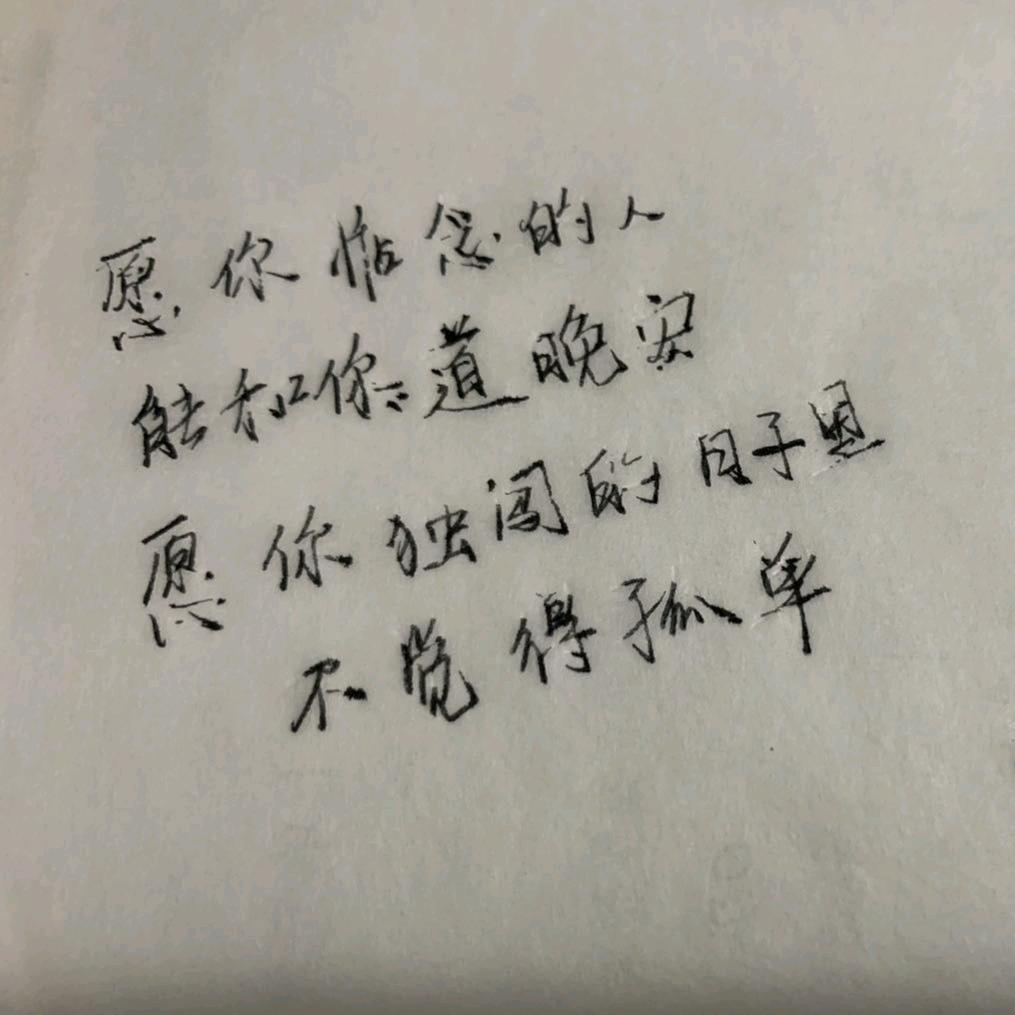 愿你惦念的人
能和你道晚安
愿你独闯的日子里
不觉得孤单